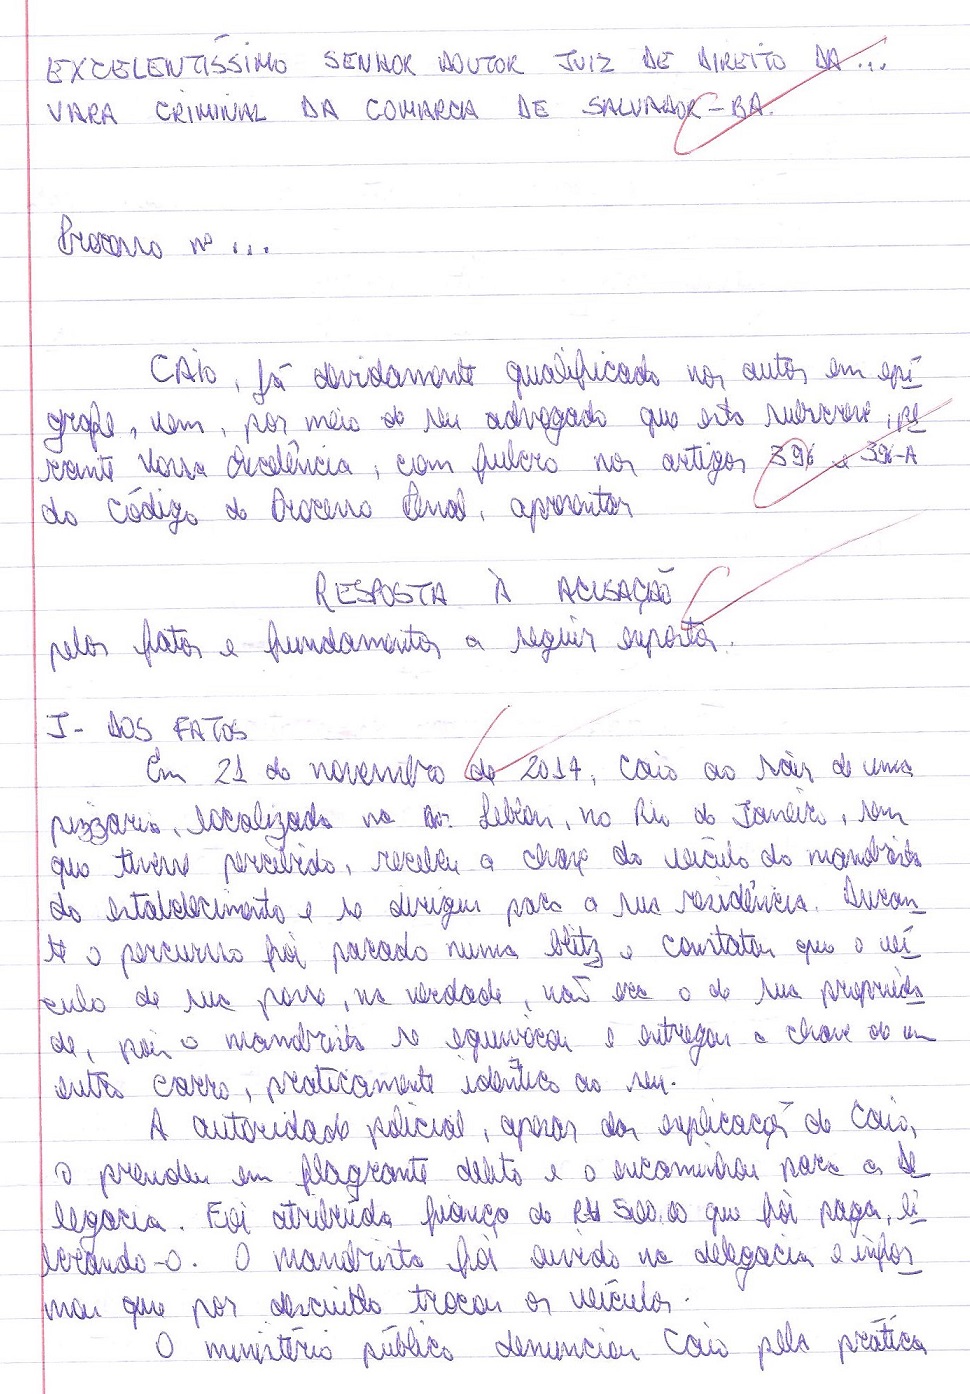 EXCELENTÍSSIMO SENHOR DOUTOR JUIZ DE DIREITO DA...
VARA CRIMINAL DA COMARCA DE SALVADOR-BA.
Processo nº ...
CAIO, já devidamente qualificado nos autos em epí
grafe, vem, por meio do seu advogado que esta subscreve, pe
rante Vossa Excelência, com fulcro nos artigos 396 e 396-A
do Código de Processo Penal, apresentar
RESPOSTA À ACUSAÇÃO
pelos fatos e fundamentos a seguir expostos.
I- DOS FATOS
Em 21 de novembro de 2017, Caio ao sair de uma
pizzaria, localizada na Av. Leblon, no Rio de Janeiro, sem
que tivesse percebido, recebeu a chave do veículo do manobrista
do estabelecimento e se dirigiu para a sua residência. Duran
te o percurso foi parado numa blitz e constatou que o veí
culo de sua posse, na verdade, não era o de sua proprieda
de, pois o manobrista se equivocou e entregou a chave de um
outro carro, praticamente idêntico ao seu.
A autoridade policial, apesar das explicação de Caio,
o prendeu em flagrante delito e o encaminhou para a de
legacia. Foi atribuída fiança de R$ 500,00 que foi paga, li
berando-o. O manobrista foi ouvido na delegacia e infor
mou que por descuido trocou os veículos.
O ministério público denunciou Caio pela prática